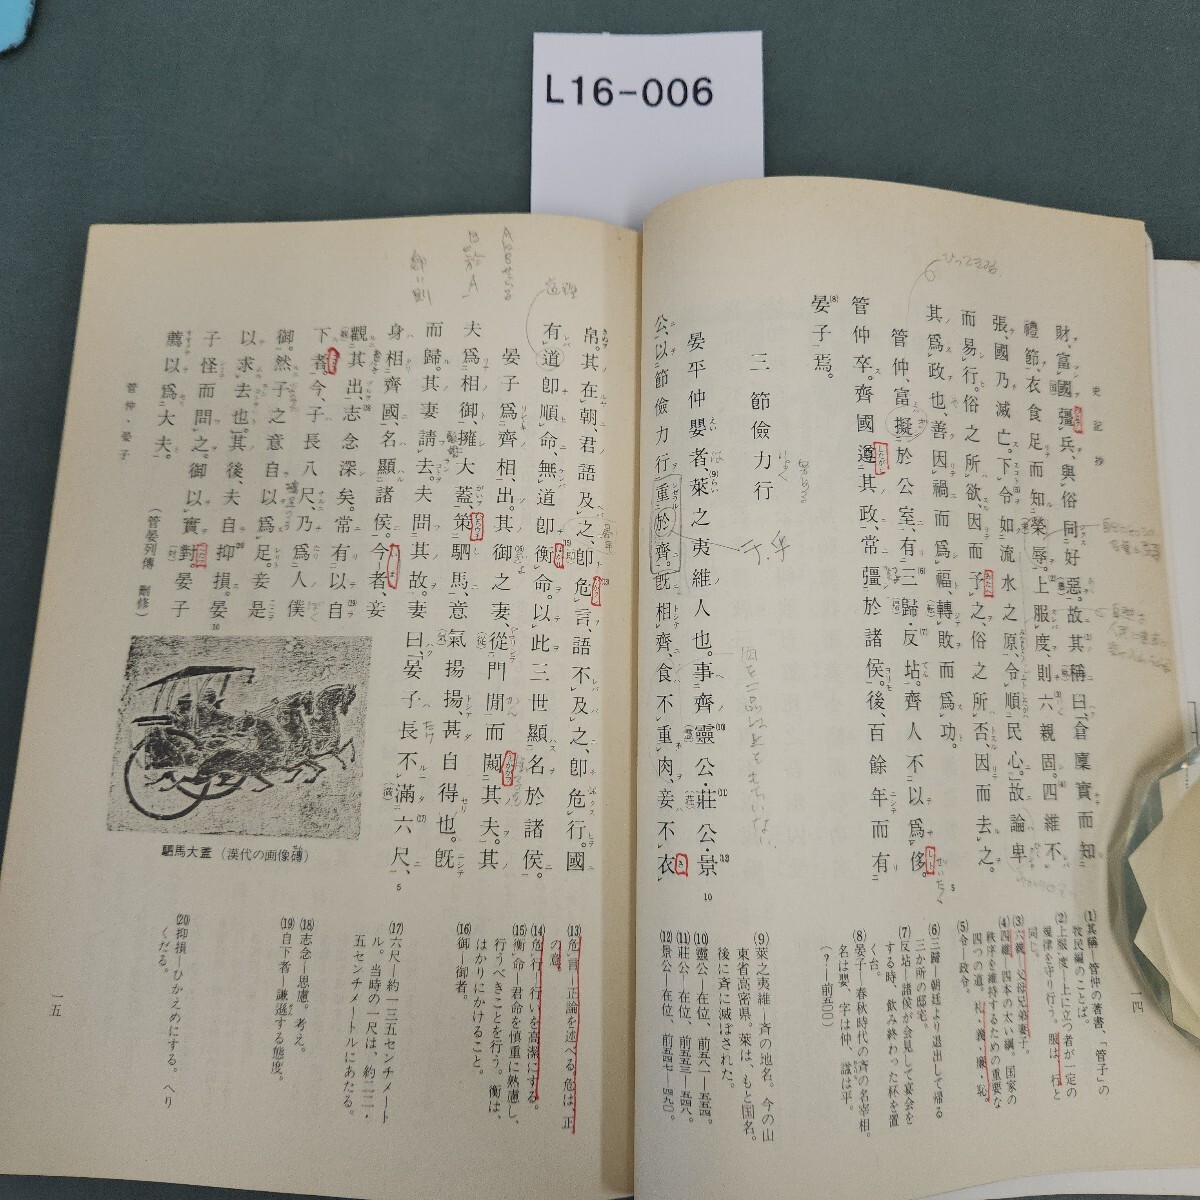 L16-006
史記抄
財、富國彊兵、與俗同好惡。故其稱曰、倉廩實而知
禮節、衣食足而知榮辱。上服度、則六親固。四維不
張、國乃滅亡。下令如流水之原、令順民心。故論卑
而易行。俗之所欲、因而予之、俗之所否、因而去之。
其爲政也、善因禍而爲福、轉敗而爲功。
管仲富擬於公室、有三歸・反坫。齊人不以爲侈。
管仲卒。齊國遵其政、常彊於諸侯。後百餘年而有
晏子焉。
三 節儉力行
晏平仲嬰者、萊之夷維人也。事齊靈公・莊公・景
公、以節儉力行、重於齊。既相齊、食不重肉、妾不衣
(1)其稱―管仲の著書、「管子」の
牧民編のことば。
(2)上服度―上に立つ者が一定の
規律を守り行う。服は、行と
同じ。
(3)六親―父母兄弟妻子。
(4)四維―四本の太い綱。国家の
秩序を維持するための重要な
四つの道。礼・義・廉・恥。
(5)令―政令。
(6)三歸―朝廷より退出して帰る
三か所の邸宅。
(7)反坫―諸侯が会見して宴会を
する時、飲み終わった杯を置
く台。
(8)晏子―春秋時代の斉の名宰相。
名は嬰、字は仲、諡は平。
(?―前五〇〇)
(9)萊之夷維―斉の地名。今の山
東省高密県。萊は、もと国名。
後に斉に滅ぼされた。
(10)靈公―在位、前五八一―五五四。
(11)莊公―在位、前五五三―五四八。
(12)景公―在位、前五四七―四九〇。
一四
帛。其在朝、君語及之、卽危言、語不及之、卽危行。國
有道、卽順命、無道、卽衡命。以此三世顯名於諸侯。
晏子爲齊相、出。其御之妻、從門閒而闚其夫。其
夫爲相御、擁大蓋、策駟馬、意氣揚揚、甚自得也。既
而歸。其妻請去。夫問其故。妻曰、晏子長不滿六尺、
身相齊國、名顯諸侯。今者、妾
觀其出、志念深矣。常有以自
下者。今、子長八尺、乃爲人僕
御。然子之意、自以爲足。妾是
以求去也。其後、夫自抑損。晏
子怪而問之。御以實對。晏子
薦以爲大夫。
(管晏列傳 刪修)
管仲・晏子
駟馬大蓋(漢代の画像磚)
(13)危言―正論を述べる。危は、正
の意。
(14)危行―行いを高潔にする。
(15)衡命―君命を慎重に熟慮し、
行うべきことを行う。衡は、
はかりにかけること。
(16)御―御者。
(17)六尺―約一三五センチメート
ル。当時の一尺は、約二二・
五センチメートルにあたる。
(18)志念―思慮。考え。
(19)自下者―謙遜する態度。
(20)抑損―ひかえめにする。へり
くだる。
一五